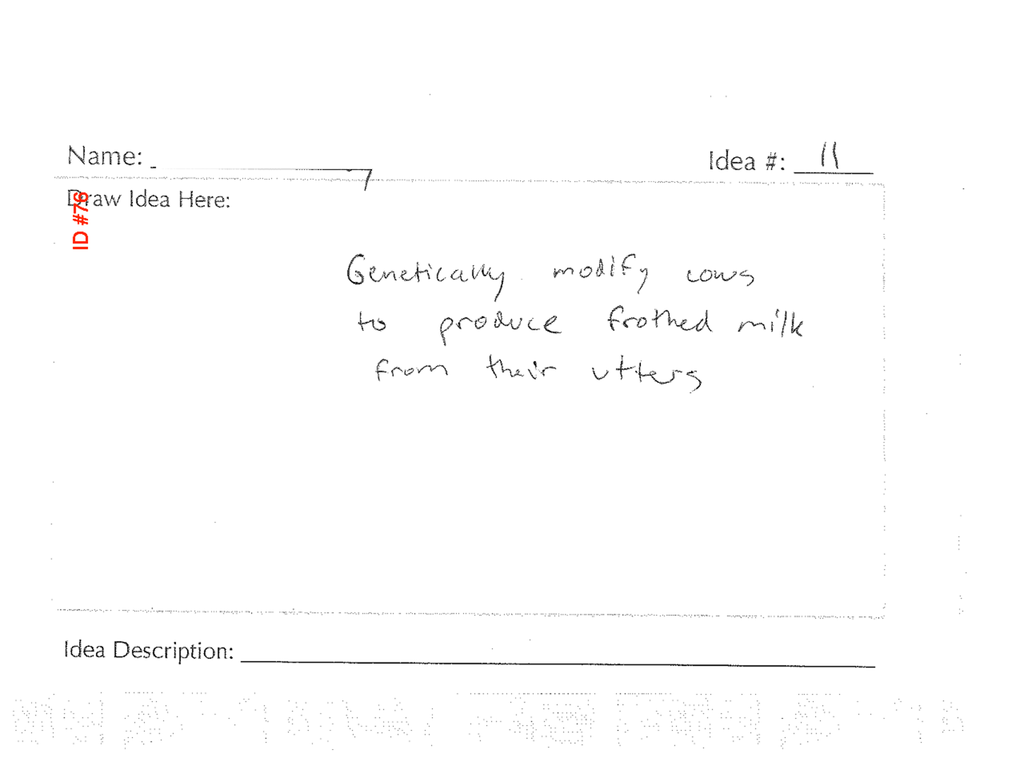 Name:
Idea #: 11
Draw Idea Here:
ID #76
Genetically modify cows
to produce frothed milk
from their utters
Idea Description: